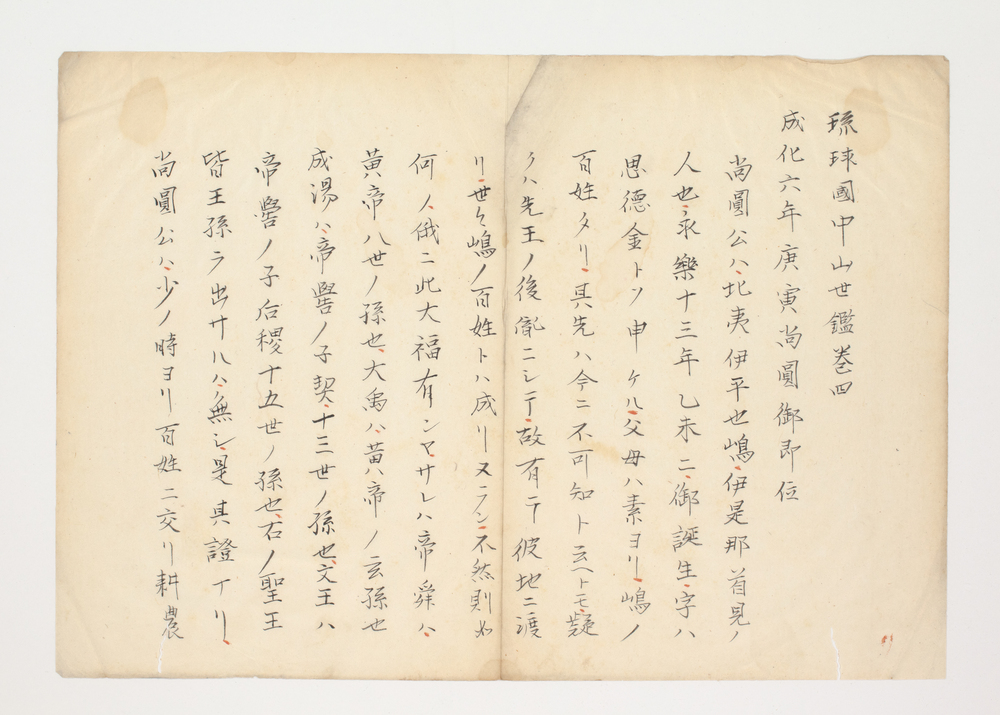 琉球國中山世鑑巻四
成化六年庚寅尚圓御即位
尚圓公ハ、北夷伊平也嶋、伊是那首見ノ
人也、永樂十三年乙未ニ、御誕生、字ハ
思德金トソ申ケル、父母ハ素ヨリ、嶋ノ
百姓タリ、其先ハ今ニ不可知ト云ヘトモ、疑
クハ先王ノ後胤ニシテ、故有テ彼地ニ渡
リ、世々嶋ノ百姓トハ成リヌラン、不然則如
何ノ人俄ニ此大福有ンヤ、サレハ帝舜ハ、
黃帝八世ノ孫也、大禹ハ、黃帝ノ玄孫也
成湯ハ、帝嚳ノ子契、十三世ノ孫也、文王ハ
帝嚳ノ子后稷十五世ノ孫也、右ノ聖王
皆王孫ヲ出サルハ、無シ、是其證ナリ、
尚圓公ハ、少ノ時ヨリ百姓ニ交リ耕農